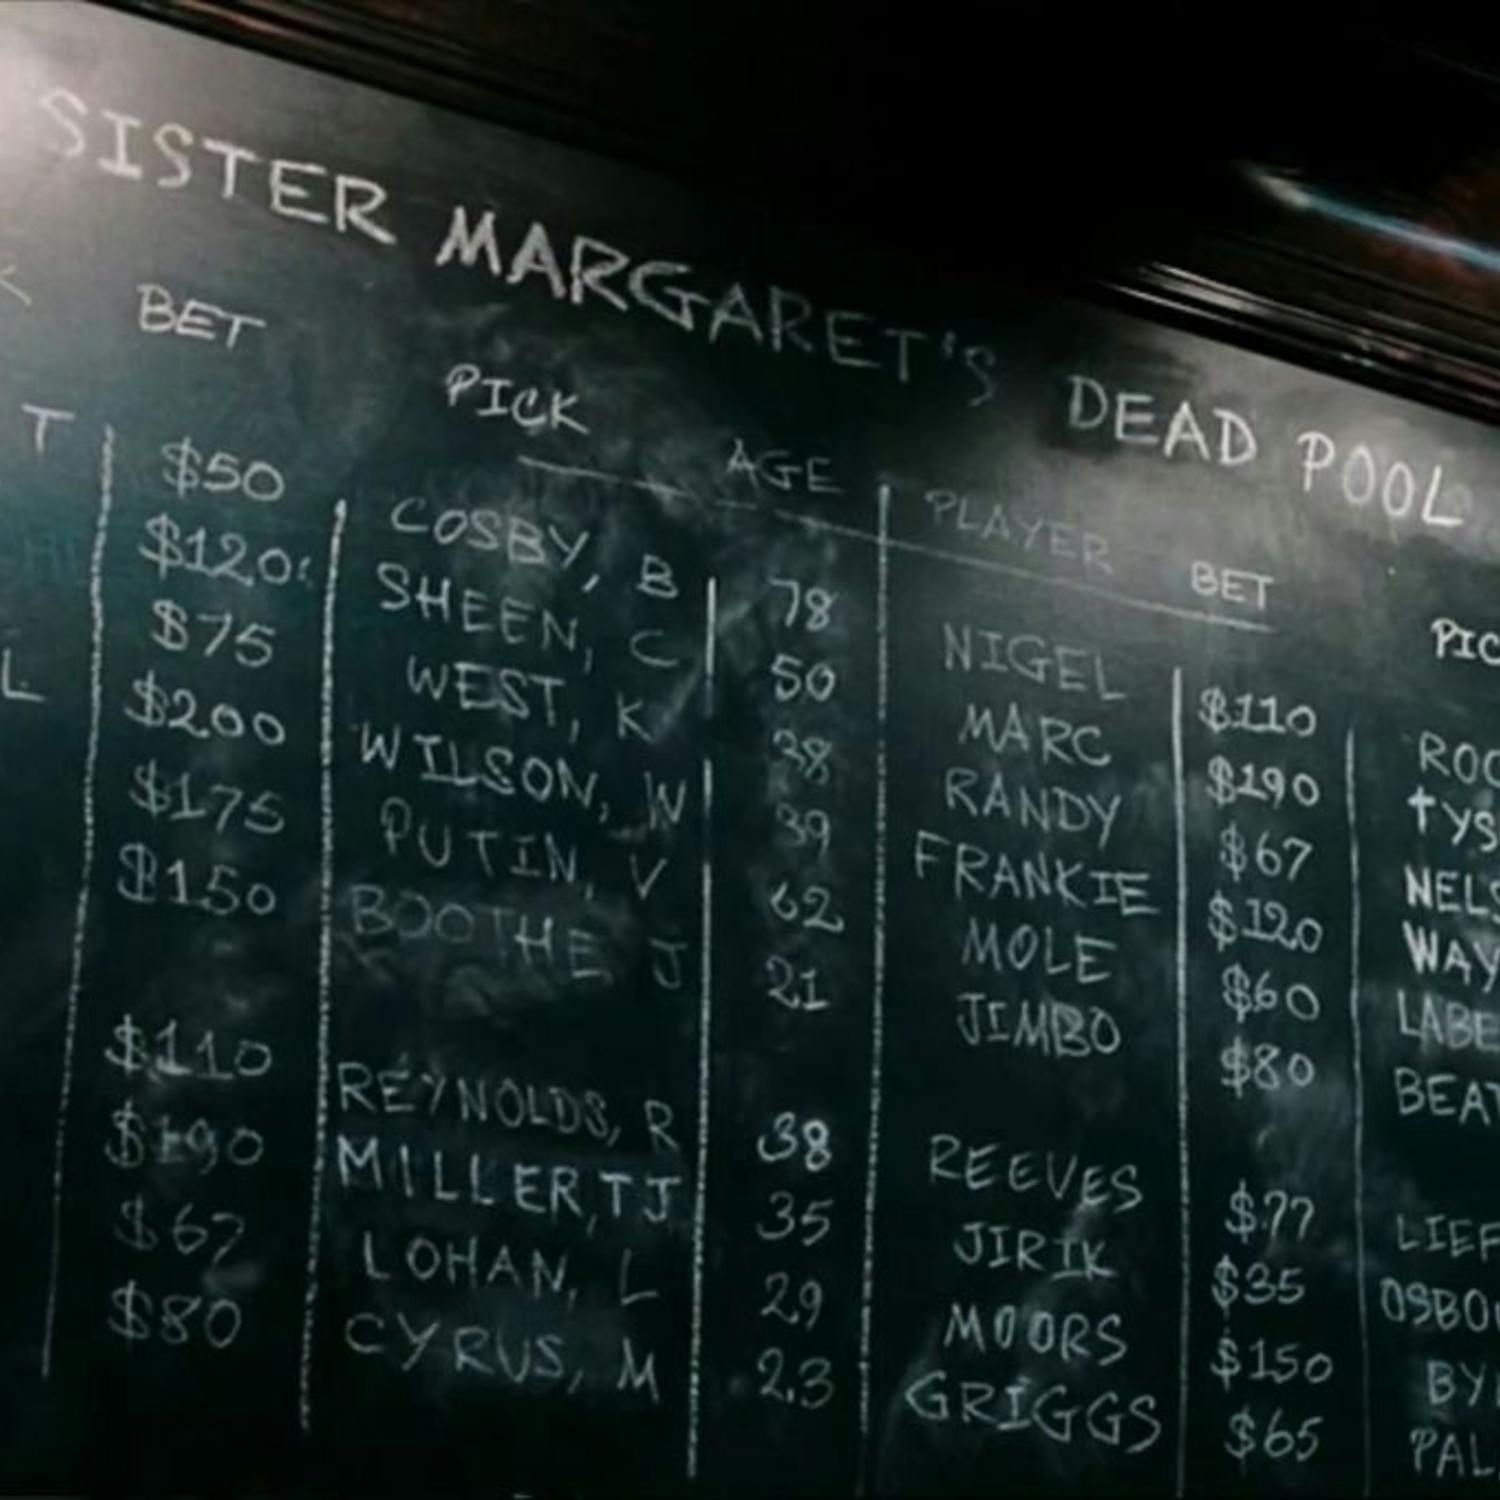 SISTER MARGARET'S DEAD POOL
BET PICK AGE PLAYER BET PIC
T $50 COSBY, B 78 NIGEL $110 ROC
$120 SHEEN, C 50 MARC $190 TYS
$75 WEST, K 38 RANDY $67 NELS
L $200 WILSON, W 39 FRANKIE $120 WAY
$175 PUTIN, V 62 MOLE $60 LABE
$150 BOOTHE J 21 JIMBO $80 BEAT
$110 REYNOLDS, R 38 REEVES $77 LIEF
$190 MILLER, TJ 35 JIRIK $35 OSBO
$67 LOHAN, L 29 MOORS $150 BY
$80 CYRUS, M 23 GRIGGS $65 PAL